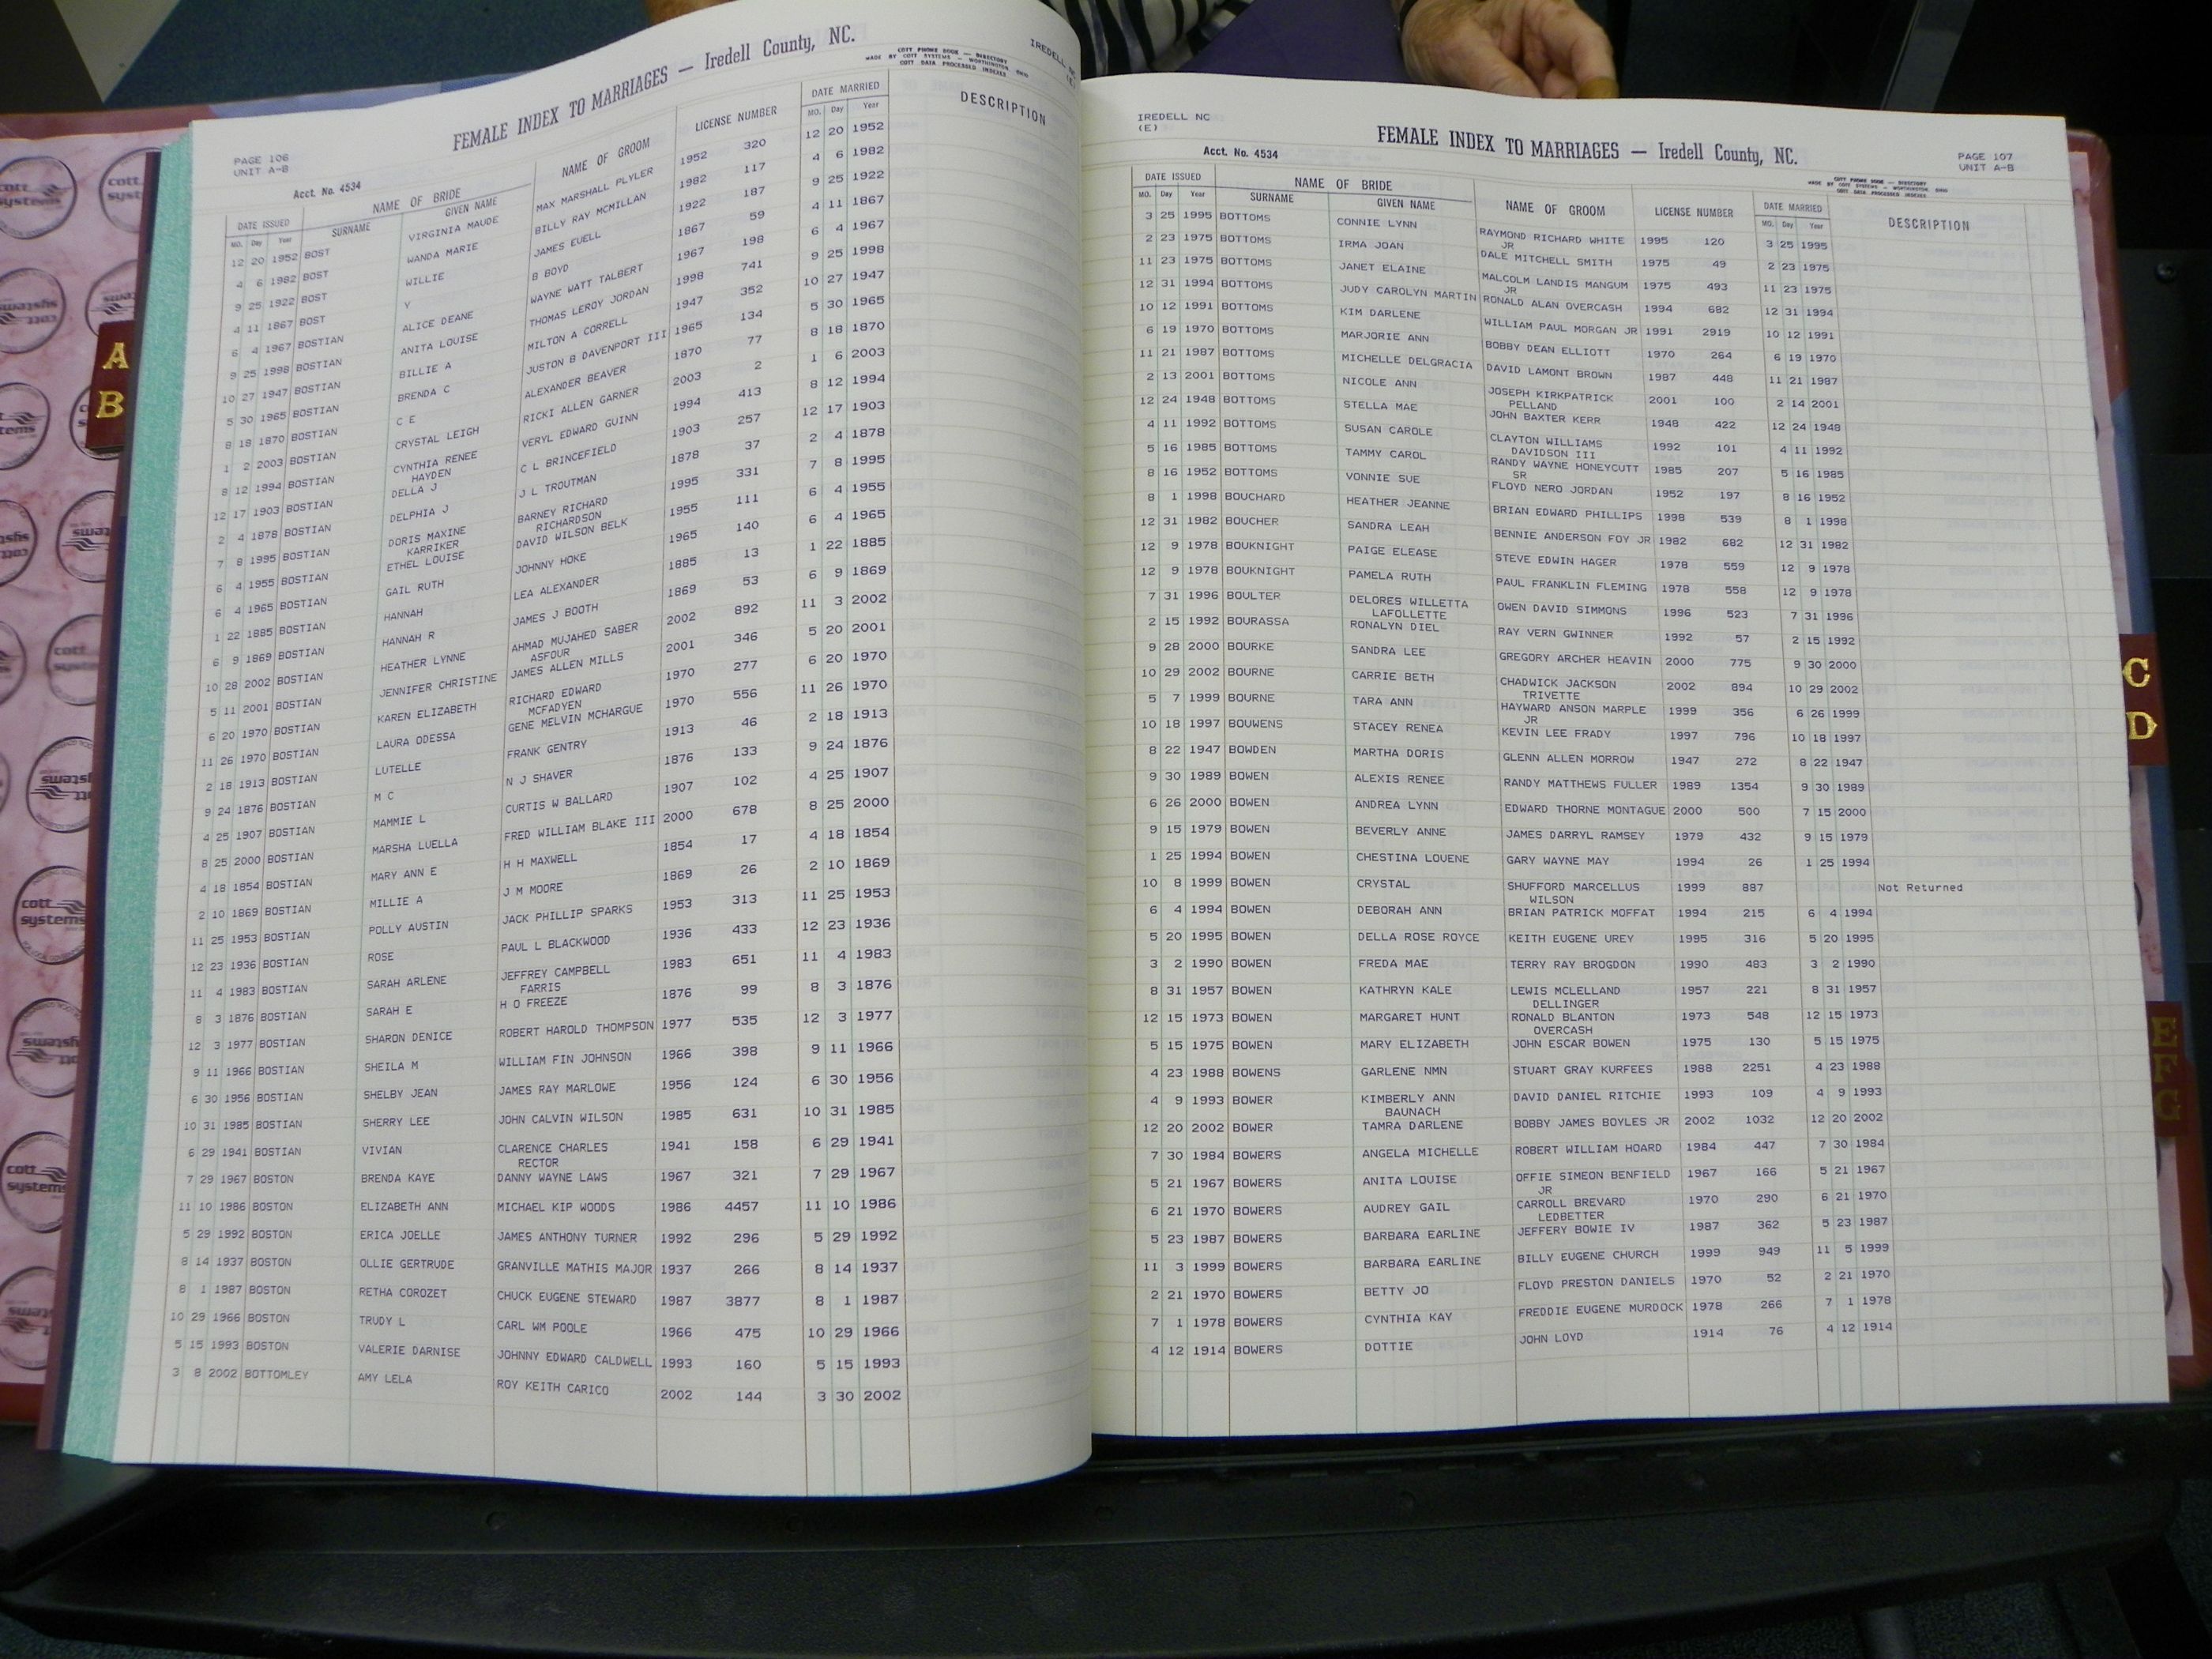 FEMALE INDEX TO MARRIAGES — Iredell County, NC.
COTT PHONE BOOK — DIRECTORY
MADE BY COTT SYSTEMS — WORTHINGTON, OHIO
COTT DATA PROCESSED INDEXES
IREDELL NC
(E)
PAGE 106
UNIT A-B
Acct. No. 4534
DATE ISSUED NAME OF BRIDE NAME OF GROOM LICENSE NUMBER DATE MARRIED DESCRIPTION
MO. Day Year SURNAME GIVEN NAME MO. Day Year
12 20 1952 BOST VIRGINIA MAUDE MAX MARSHALL PLYLER 1952 320 12 20 1952
4 6 1982 BOST WANDA MARIE BILLY RAY MCMILLAN 1982 117 4 6 1982
9 25 1922 BOST WILLIE JAMES EUELL 1922 187 9 25 1922
4 11 1867 BOST Y B BOYD 1867 59 4 11 1867
6 4 1967 BOSTIAN ALICE DEANE WAYNE WATT TALBERT 1967 198 6 4 1967
9 25 1998 BOSTIAN ANITA LOUISE THOMAS LEROY JORDAN 1998 741 9 25 1998
10 27 1947 BOSTIAN BILLIE A MILTON A CORRELL 1947 352 10 27 1947
5 30 1965 BOSTIAN BRENDA C JUSTON B DAVENPORT III 1965 134 5 30 1965
8 18 1870 BOSTIAN C E ALEXANDER BEAVER 1870 77 8 18 1870
1 2 2003 BOSTIAN CRYSTAL LEIGH RICKI ALLEN GARNER 2003 2 1 6 2003
8 12 1994 BOSTIAN CYNTHIA RENEE VERYL EDWARD GUINN 1994 413 8 12 1994
HAYDEN
12 17 1903 BOSTIAN DELLA J C L BRINCEFIELD 1903 257 12 17 1903
2 4 1878 BOSTIAN DELPHIA J J L TROUTMAN 1878 37 2 4 1878
7 8 1995 BOSTIAN DORIS MAXINE BARNEY RICHARD 1995 331 7 8 1995
KARRIKER RICHARDSON
6 4 1955 BOSTIAN ETHEL LOUISE DAVID WILSON BELK 1955 111 6 4 1955
6 4 1965 BOSTIAN GAIL RUTH JOHNNY HOKE 1965 140 6 4 1965
1 22 1885 BOSTIAN HANNAH LEA ALEXANDER 1885 13 1 22 1885
6 9 1869 BOSTIAN HANNAH R JAMES J BOOTH 1869 53 6 9 1869
10 28 2002 BOSTIAN HEATHER LYNNE AHMAD MUJAHED SABER 2002 892 11 3 2002
ASFOUR
5 11 2001 BOSTIAN JENNIFER CHRISTINE JAMES ALLEN MILLS 2001 346 5 20 2001
6 20 1970 BOSTIAN KAREN ELIZABETH RICHARD EDWARD 1970 277 6 20 1970
MCFADYEN
11 26 1970 BOSTIAN LAURA ODESSA GENE MELVIN MCHARGUE 1970 556 11 26 1970
2 18 1913 BOSTIAN LUTELLE FRANK GENTRY 1913 46 2 18 1913
9 24 1876 BOSTIAN M C N J SHAVER 1876 133 9 24 1876
4 25 1907 BOSTIAN MAMMIE L CURTIS W BALLARD 1907 102 4 25 1907
8 25 2000 BOSTIAN MARSHA LUELLA FRED WILLIAM BLAKE III 2000 678 8 25 2000
4 18 1854 BOSTIAN MARY ANN E H H MAXWELL 1854 17 4 18 1854
2 10 1869 BOSTIAN MILLIE A J M MOORE 1869 26 2 10 1869
11 25 1953 BOSTIAN POLLY AUSTIN JACK PHILLIP SPARKS 1953 313 11 25 1953
12 23 1936 BOSTIAN ROSE PAUL L BLACKWOOD 1936 433 12 23 1936
11 4 1983 BOSTIAN SARAH ARLENE JEFFREY CAMPBELL 1983 651 11 4 1983
FARRIS
8 3 1876 BOSTIAN SARAH E H O FREEZE 1876 99 8 3 1876
12 3 1977 BOSTIAN SHARON DENICE ROBERT HAROLD THOMPSON 1977 535 12 3 1977
9 11 1966 BOSTIAN SHEILA M WILLIAM FIN JOHNSON 1966 398 9 11 1966
6 30 1956 BOSTIAN SHELBY JEAN JAMES RAY MARLOWE 1956 124 6 30 1956
10 31 1985 BOSTIAN SHERRY LEE JOHN CALVIN WILSON 1985 631 10 31 1985
6 29 1941 BOSTIAN VIVIAN CLARENCE CHARLES 1941 158 6 29 1941
RECTOR
7 29 1967 BOSTON BRENDA KAYE DANNY WAYNE LAWS 1967 321 7 29 1967
11 10 1986 BOSTON ELIZABETH ANN MICHAEL KIP WOODS 1986 4457 11 10 1986
5 29 1992 BOSTON ERICA JOELLE JAMES ANTHONY TURNER 1992 296 5 29 1992
8 14 1937 BOSTON OLLIE GERTRUDE GRANVILLE MATHIS MAJOR 1937 266 8 14 1937
8 1 1987 BOSTON RETHA COROZET CHUCK EUGENE STEWARD 1987 3877 8 1 1987
10 29 1966 BOSTON TRUDY L CARL WM POOLE 1966 475 10 29 1966
5 15 1993 BOSTON VALERIE DARNISE JOHNNY EDWARD CALDWELL 1993 160 5 15 1993
3 8 2002 BOTTOMLEY AMY LELA ROY KEITH CARICO 2002 144 3 30 2002
IREDELL NC
(E)
FEMALE INDEX TO MARRIAGES — Iredell County, NC.
Acct. No. 4534
PAGE 107
UNIT A-B
COTT PHONE BOOK — DIRECTORY
MADE BY COTT SYSTEMS — WORTHINGTON, OHIO
COTT DATA PROCESSED INDEXES
DATE ISSUED NAME OF BRIDE NAME OF GROOM LICENSE NUMBER DATE MARRIED DESCRIPTION
MO. Day Year SURNAME GIVEN NAME MO. Day Year
3 25 1995 BOTTOMS CONNIE LYNN RAYMOND RICHARD WHITE 1995 120 3 25 1995
JR
2 23 1975 BOTTOMS IRMA JOAN DALE MITCHELL SMITH 1975 49 2 23 1975
11 23 1975 BOTTOMS JANET ELAINE MALCOLM LANDIS MANGUM 1975 493 11 23 1975
JR
12 31 1994 BOTTOMS JUDY CAROLYN MARTIN RONALD ALAN OVERCASH 1994 682 12 31 1994
10 12 1991 BOTTOMS KIM DARLENE WILLIAM PAUL MORGAN JR 1991 2919 10 12 1991
6 19 1970 BOTTOMS MARJORIE ANN BOBBY DEAN ELLIOTT 1970 264 6 19 1970
11 21 1987 BOTTOMS MICHELLE DELGRACIA DAVID LAMONT BROWN 1987 448 11 21 1987
2 13 2001 BOTTOMS NICOLE ANN JOSEPH KIRKPATRICK 2001 100 2 14 2001
PELLAND
12 24 1948 BOTTOMS STELLA MAE JOHN BAXTER KERR 1948 422 12 24 1948
4 11 1992 BOTTOMS SUSAN CAROLE CLAYTON WILLIAMS 1992 101 4 11 1992
DAVIDSON III
5 16 1985 BOTTOMS TAMMY CAROL RANDY WAYNE HONEYCUTT 1985 207 5 16 1985
SR
8 16 1952 BOTTOMS VONNIE SUE FLOYD NERO JORDAN 1952 197 8 16 1952
8 1 1998 BOUCHARD HEATHER JEANNE BRIAN EDWARD PHILLIPS 1998 539 8 1 1998
12 31 1982 BOUCHER SANDRA LEAH BENNIE ANDERSON FOY JR 1982 682 12 31 1982
12 9 1978 BOUKNIGHT PAIGE ELEASE STEVE EDWIN HAGER 1978 559 12 9 1978
12 9 1978 BOUKNIGHT PAMELA RUTH PAUL FRANKLIN FLEMING 1978 558 12 9 1978
7 31 1996 BOULTER DELORES WILLETTA OWEN DAVID SIMMONS 1996 523 7 31 1996
LAFOLLETTE
2 15 1992 BOURASSA RONALYN DIEL RAY VERN GWINNER 1992 57 2 15 1992
9 28 2000 BOURKE SANDRA LEE GREGORY ARCHER HEAVIN 2000 775 9 30 2000
10 29 2002 BOURNE CARRIE BETH CHADWICK JACKSON 2002 894 10 29 2002
TRIVETTE
5 7 1999 BOURNE TARA ANN HAYWARD ANSON MARPLE 1999 356 6 26 1999
JR
10 18 1997 BOUWENS STACEY RENEA KEVIN LEE FRADY 1997 796 10 18 1997
8 22 1947 BOWDEN MARTHA DORIS GLENN ALLEN MORROW 1947 272 8 22 1947
9 30 1989 BOWEN ALEXIS RENEE RANDY MATTHEWS FULLER 1989 1354 9 30 1989
6 26 2000 BOWEN ANDREA LYNN EDWARD THORNE MONTAGUE 2000 500 7 15 2000
9 15 1979 BOWEN BEVERLY ANNE JAMES DARRYL RAMSEY 1979 432 9 15 1979
1 25 1994 BOWEN CHESTINA LOUENE GARY WAYNE MAY 1994 26 1 25 1994
10 8 1999 BOWEN CRYSTAL SHUFFORD MARCELLUS 1999 887 Not Returned
WILSON
6 4 1994 BOWEN DEBORAH ANN BRIAN PATRICK MOFFAT 1994 215 6 4 1994
5 20 1995 BOWEN DELLA ROSE ROYCE KEITH EUGENE UREY 1995 316 5 20 1995
3 2 1990 BOWEN FREDA MAE TERRY RAY BROGDON 1990 483 3 2 1990
8 31 1957 BOWEN KATHRYN KALE LEWIS MCLELLAND 1957 221 8 31 1957
DELLINGER
12 15 1973 BOWEN MARGARET HUNT RONALD BLANTON 1973 548 12 15 1973
OVERCASH
5 15 1975 BOWEN MARY ELIZABETH JOHN ESCAR BOWEN 1975 130 5 15 1975
4 23 1988 BOWENS GARLENE NMN STUART GRAY KURFEES 1988 2251 4 23 1988
4 9 1993 BOWER KIMBERLY ANN DAVID DANIEL RITCHIE 1993 109 4 9 1993
BAUNACH
12 20 2002 BOWER TAMRA DARLENE BOBBY JAMES BOYLES JR 2002 1032 12 20 2002
7 30 1984 BOWERS ANGELA MICHELLE ROBERT WILLIAM HOARD 1984 447 7 30 1984
5 21 1967 BOWERS ANITA LOUISE OFFIE SIMEON BENFIELD 1967 166 5 21 1967
JR
6 21 1970 BOWERS AUDREY GAIL CARROLL BREVARD 1970 290 6 21 1970
LEDBETTER
5 23 1987 BOWERS BARBARA EARLINE JEFFERY BOWIE IV 1987 362 5 23 1987
11 3 1999 BOWERS BARBARA EARLINE BILLY EUGENE CHURCH 1999 949 11 5 1999
2 21 1970 BOWERS BETTY JO FLOYD PRESTON DANIELS 1970 52 2 21 1970
7 1 1978 BOWERS CYNTHIA KAY FREDDIE EUGENE MURDOCK 1978 266 7 1 1978
4 12 1914 BOWERS DOTTIE JOHN LOYD 1914 76 4 12 1914
A
B
C
D
E
F
G
cott
systems